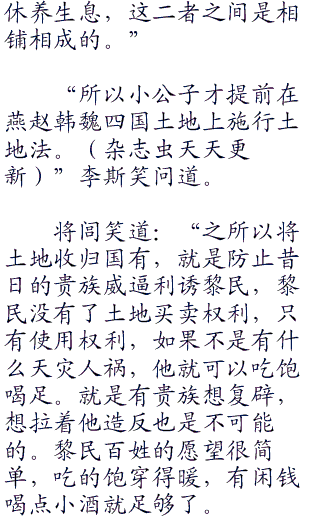 休养生息，这二者之间是相
铺相成的。”
“所以小公子才提前在
燕赵韩魏四国土地上施行土
地法。（杂志虫天天更
新）”李斯笑问道。
将闾笑道：“之所以将
土地收归国有，就是防止昔
日的贵族威逼利诱黎民，黎
民没有了土地买卖权利，只
有使用权利，如果不是有什
么天灾人祸，他就可以吃饱
喝足。就是有贵族想复辟，
想拉着他造反也是不可能
的。黎民百姓的愿望很简
单，吃的饱穿得暖，有闲钱
喝点小酒就足够了。